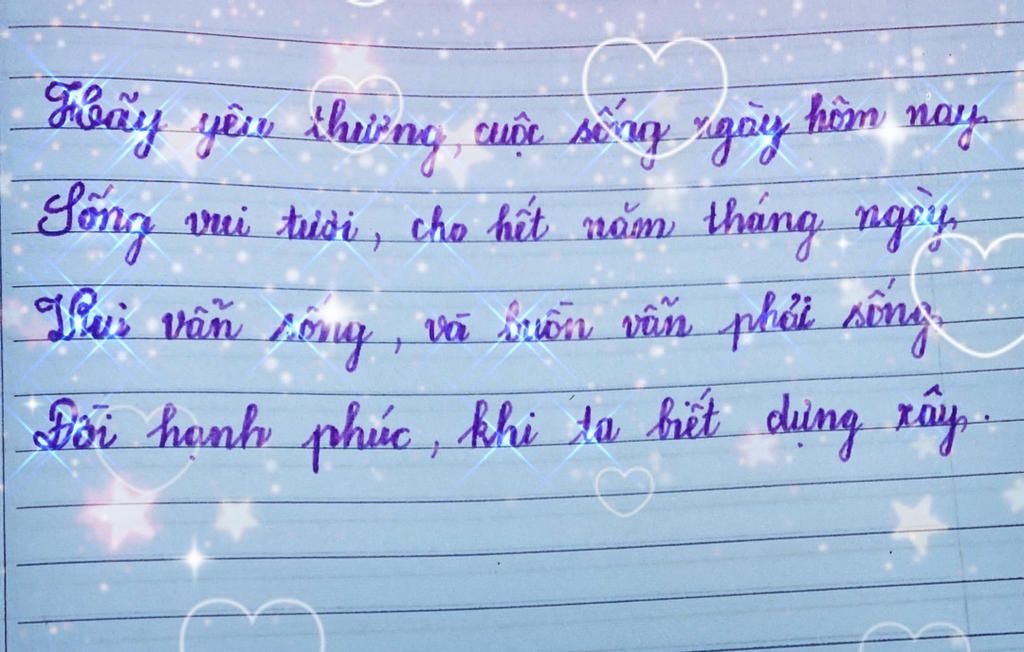 Hãy yêu thương, cuộc sống ngày hôm nay
Sống vui tươi, cho hết năm tháng ngày,
Vui vẫn sống, và buồn vẫn phải sống,
Đời hạnh phúc, khi ta biết dựng xây.